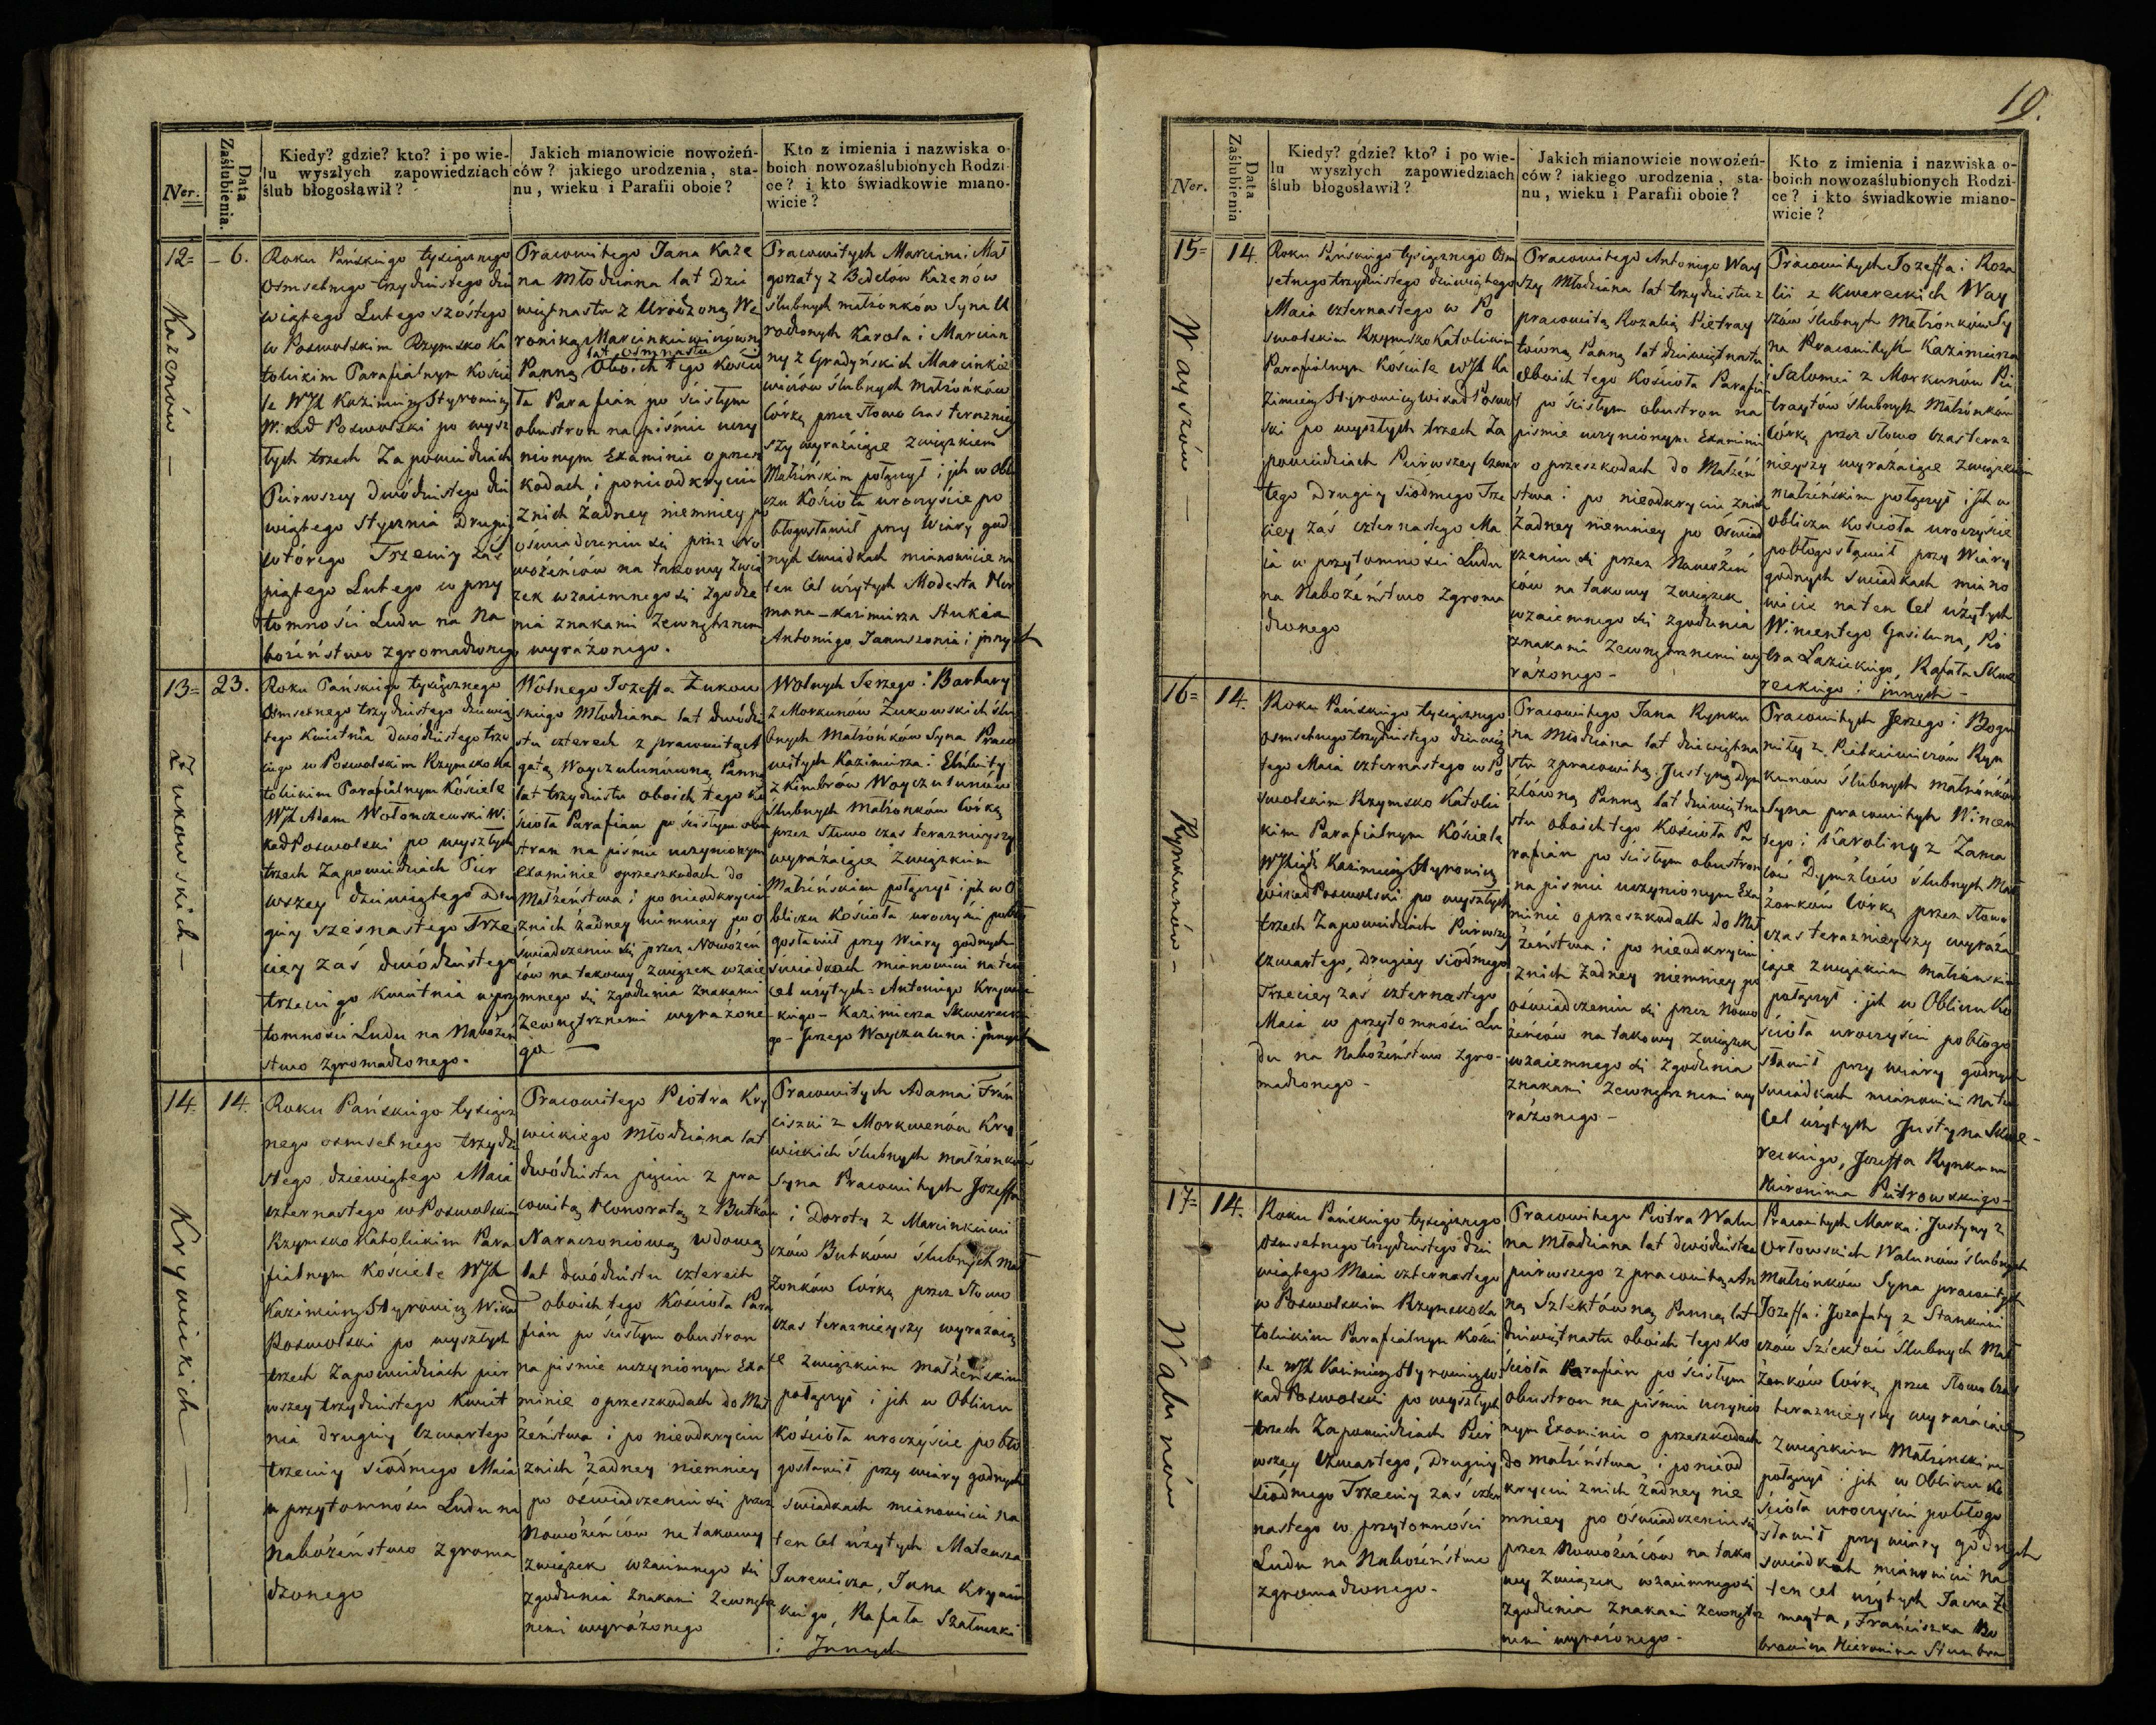 Ner.
Data
Zaślubienia.
Kiedy? gdzie? kto? i po wie-
lu wyszłych zapowiedziach
ślub błogosławił?
Jakich mianowicie nowożeń-
ców? jakiego urodzenia, sta-
nu, wieku i Parafii oboie?
Kto z imienia i nazwiska o-
boich nowozaślubionych Rodzi-
ce? i kto świadkowie miano-
wicie?
12=
Kazenów —
- 6.
Roku Pańskiego tysiącznego
osmsetnego trzydziestego dzie
wiątego Lutego szóstego
w Poswolskim Rzymsko Ka
tolickim Parafialnym Koście
le WJX Kazimierz Styrowicz
Wikad Poswolski po wysz
łych trzech Zapowiedziach
Pierwszey dwódziestego dzie
wiątego Stycznia drugiey
wtórego Trzeciey zaś
piątego Lutego w przy
tomności Ludu na Na
bożeństwo zgromadzonego
Pracowitego Jana Kaze
na Młodziana lat Dzie
więtnastu z Urodzoną We
roniką Marcinkiewiczówną
lat osmnastu
Panną Oboich tego Kościo
ła Parafian po ścisłym
obustron na piśmie uczy
nionym Examinie o przesz
kodach i ponieodkryciu
znich żadney niemniey po
oświadczeniu się przez No
wożeńców na takowy zwią
zek wzaiemnego się zgodze
nia znakami Zewnętrznem
wyrażonego.
Pracowitych Marcina i Mał
gorzaty z Bedelow Kazenów
ślubnych małżonków Syna U
rodzonych Karola i Marcian
ny z Gradyńskich Marcinkie
wiczów ślubnych Małżonków
Córkę przez słowo czas teraznie
szy wyrażaiące związkiem
Małżeńskim połączył i ich w Obli
czu Kościoła uroczyście po
błogosławił przy Wiary god
nych świadkach mianowicie na
ten Cel użytych Modesta Her
mana - Kazimierza Stukia
Antoniego Januszonia i jnnych
13=
Żukowskich —
23.
Roku Pańskiego tysiącznego
Osmsetnego trzydziestego dziewią
tego Kwietnia dwódziestego trze
ciego w Poswolskim Rzymsko Ka
tolickim Parafialnym Kościele
WJX Adam Wołonczewski Wi
kad Poswolski po wyszłych
trzech Zapowiedziach Pier
wszey dziewiątego Dru
giey szesnastego Trze
ciey zaś dwódziestego
trzeciego Kwietnia w przy
tomności Ludu na Nabożeń
stwo zgromadzonego.
Wolnego Jozeffa Żukow
skiego Młodziana lat dwódzie
stu czterech z pracowitą A
gatą Woyczulunówną Panną
lat trzydziestu oboich tego Ko
ścioła Parafian po ścisłym obu
stron na piśmie uczynionym
Examinie oprzeszkodach do
Małżeństwa i po nieodkryciu
znich żadney niemniey po o
świadczeniu się przez Nowożeń
ców na takowy związek wzaie
mnego się zgodzenia znakami
Zewnętrznemi wyrażone
go —
Wolnych Jerzego i Barbary
z Morkunow Żukowskich ślu
bnych Małżonków Syna Praco
witych Kazimierza i Elżbiety
z Kimbrów Woyczulunów
Ślubnych Małżonków Córkę
przez Słowo czas teraznieyszy
wyrażaiące Związkiem
Małżeńskim połączył i ich w O
bliczu Kościoła uroczyście pobło
gosławił przy Wiary godnych
świadkach mianowicie na ten
cel użytych = Antoniego Krzywic
kiego - Kazimierza Skwerecki
go - Jerzego Woyczuluna i jnnych
14.
Krzywickich —
14.
Roku Pańskiego tysiącz
nego osmsetnego trzydzie
stego dziewiątego Maia
czternastego w Poswolskim
Rzymsko Katolickim Para
fialnym Kościele WJX
Kazimierz Styrowicz Wikad
Poswolski po wyszłych
trzech Zapowiedziach pier
wszey trzydziestego Kwiet
nia drugiey Czwartego
trzeciey siódmego Maia
w przytomności Ludu na
Nabożeństwo zgroma
dzonego
Pracowitego Piotra Krzy
wickiego Młodziana lat
dwódziestu pięciu z pra
cowitą Honoratą z Butków
Naraczoniową wdową
lat dwódziestu czterech
oboich tego Kościoła Para
fian po ścisłym obustron
na piśmie uczynionym Exa
minie oprzeszkodach do Mał
żeństwa i po nieodkryciu
znich żadney niemniey
po oświadczeniu się przez
Nowożeńców na takowy
związek wzaiemnego się
zgodzenia znakami Zewnętrz
nemi wyrażonego
Pracowitych Adama i Fran
ciszki z Morkwenów Krzy
wickich Ślubnych małżonków
Syna Pracowitych Jozeffa
i Doroty z Marcinkiewi
czów Butków Ślubnych Mał
żonków Córką przez Słowo
czas teraznieyszy wyrażaią
ce związkiem Małżeńskim
połączył i ich w Obliczu
Kościoła uroczyście pobło
gosławił przy wiary godnych
swiadkach mianowicie na
ten cel użytych Mateusza
Jurewicza, Jana Krzywic
kiego, Rafała Szatuszki
i Jnnych
19.
Ner.
Data
Zaślubienia
Kiedy? gdzie? kto? i po wie-
lu wyszłych zapowiedziach
ślub błogosławił?
Jakich mianowicie nowożeń-
ców? iakiego urodzenia, sta-
nu, wieku i Parafii oboie?
Kto z imienia i nazwiska o-
boich nowozaślubionych Rodzi-
ce? i kto świadkowie miano-
wicie?
15=
Wayszów —
14.
Roku Pańskiego tysiącznego Osm
setnego trzydziestego dziewiątego
Maia czternastego w Po
swolskim Rzymsko Katolickim
Parafialnym Kościele WJX Ka
zimierz Styrowicz Wikad Poswol
ski po wyszłych trzech Za
powiedziach Pierwszey Czwar
tego Drugiey siodmego Trze
ciey zaś czternastego Ma
ia w przytomności Ludu
na Nabożeństwo Zgroma
dzonego
Pracowitego Antoniego Way
szy Młodziana lat trzydziestu z
pracowitą Rozalią Pietray
tówną Panną lat dziewiętnastu
Oboich tego Kościoła Parafian
po ścisłym obustron na
pismie uczynionym Examinie
o przeszkodach do Małżeń
stwa i po nieodkryciu znich
żadney niemniey po Oświad
czeniu się przez Nowożeń
ców na takowy związek
wzaiemnego się zgodzenia
znakami Zewnętrznemi wy
rażonego -
Pracowitych Jozeffa i Roza
lii z Kwereckich Way
szów ślubnych Małżonków Sy
na Pracowitych Kazimierza
i Salomei z Morkunów Pie
traytów Ślubnych Małżonków
Córkę przez słowo czas teraz
nieyszy wyrażaiące związkiem
małżeńskim połączył i Jch w
obliczu kościoła uroczyście
pobłogosławił przy Wiary
godnych świadkach miano
wicie na ten Cel użytych
Wincentego Gasiluna, Pio
tra Łazickiego, Rafała Skwe
reckiego i jnnych -
16=
Rynkunów -
14.
Roku Pańskiego tysiącznego
osmsetnego trzydziestego dziewią
tego Maia czternastego w Po
swolskim Rzymsko Katolic
kim Parafialnym Kościele
WJXiąd Kazimierz Styrowicz
Wikad Poswolski po wyszłych
trzech Zapowiedziach Pierwszey
czwartego, drugiey siódmego
Trzeciey zaś czternastego
Maia w przytomności Lu
du na Nabożeństwo zgro-
madzonego -
Pracowitego Jana Rynku
na Młodziana lat dziewiętna
stu zpracowitą Justyną Dym
żlówną Panną lat dziewiętna
stu oboich tego Kościoła Pa
rafian po ścisłym obustron
na pismie uczynionym Exa
minie o przeszkodach do Mał
żeństwa i po nieodkryciu
znich żadney niemniey po
oświadczeniu się przez Nowo
żeńców na takowy związek
wzaiemnego się zgodzenia
znakami Zewnętrznemi wy
rażonego -
Pracowitych Jerzego i Bogu
miły z Pietkiewiczów Ryn
kunów ślubnych małżonków
Syna pracowitych Wincen
tego i Karoliny z Zama
iów Dymżlów ślubnych Mał
żonków Córkę przez Słowo
czas teraznieyszy wyraża
iące związkiem małżeńskim
połączył i ich w Obliczu Ko
ścioła uroczyście pobłogo
sławił przy wiary godnych
swiadkach mianowicie na ten
Cel użytych Justyna Skwe-
reckiego, Jozeffa Rynkuna
Hieronima Pietrowskiego -
17=
Walunów
14.
Roku Pańskiego tysiącznego
Osmsetnego trzydziestego dzie
wiątego Maia czternastego
w Poswolskim Rzymsko Ka
tolickim Parafialnym Kości
ele WJX Kazimierz Styrowicz Wi
kad Poswolski po wyszłych
trzech Zapowiedziach Pier
wszey Czwartego, drugiey
siódmego Trzeciey zaś czter
nastego w przytomności
Ludu na Nabożeństwo
zgromadzonego -
Pracowitego Piotra Walu
na Młodziana lat dwódziestu
pierwszego z pracowitą An
ną Szlektówną Panną lat
dziewiętnastu oboich tego Ko
ścioła Parafian po ścisłym
obustron na piśmie uczynio
nym Examinie o przeszkodach
do małżeństwa i ponieod
kryciu znich żadney nie
mniey po oświadczeniu się
przez Nowożeńców na tako
wy Związek wzaiemnego się
zgodzenia znakami zewnętrz
nemi wyrażonego -
Pracowitych Marka i Justyny z
Orłowskich Walunów ślubnych
Małżonków Syna pracowitych
Jozeffa i Jozafaty z Stankiewi
czów Szlektów Ślubnych Mał
żonków Córkę przez Słowo czas
teraznieyszy wyrażaiące
Związkiem Małżeńskim
połączył i ich w Obliczu Ko
ścioła uroczyście pobłogo
sławił przy wiary godnych
swiadkach mianowicie na
ten cel użytych Jacka Ży
mayta, Franciszka Bo
browicza Hieronima Stumbra